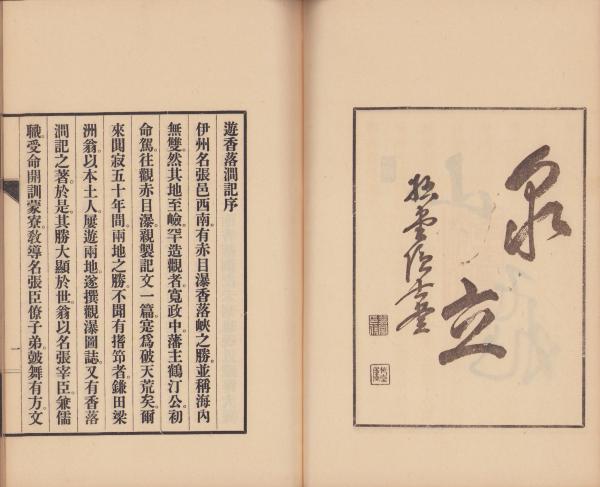 泉立
遊香落澗記序
伊州名張邑西南。有赤目瀑香落峽之勝。並稱海內
無雙。然其地至嶮。罕造觀者。寬政中。藩主鶴汀公。初
命駕往觀赤目瀑。親製記文一篇。寔爲破天荒矣。爾
來閴寂五十年間。兩地之勝。不聞有揩笻者。鎌田梁
洲翁。以本土人。屢遊兩地。遂撰觀瀑圖誌。又有香落
澗記之著。於是。其勝大顯於世。翁以名張宰臣。兼儒
職。受命開訓蒙寮。敎導名張臣僚子弟。皷舞有方。文
一